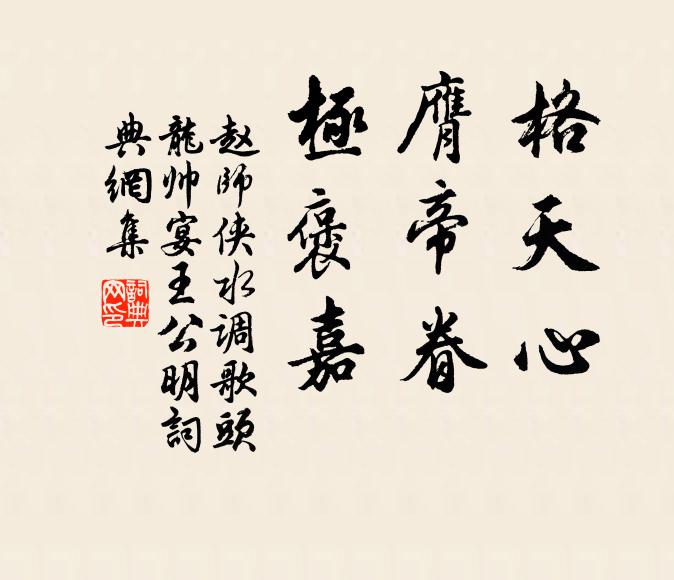 格天心
膺帝眷
極褒嘉
赵師侠水调歌頭
龍帅宴王公明詞
典網集
詞典
网印